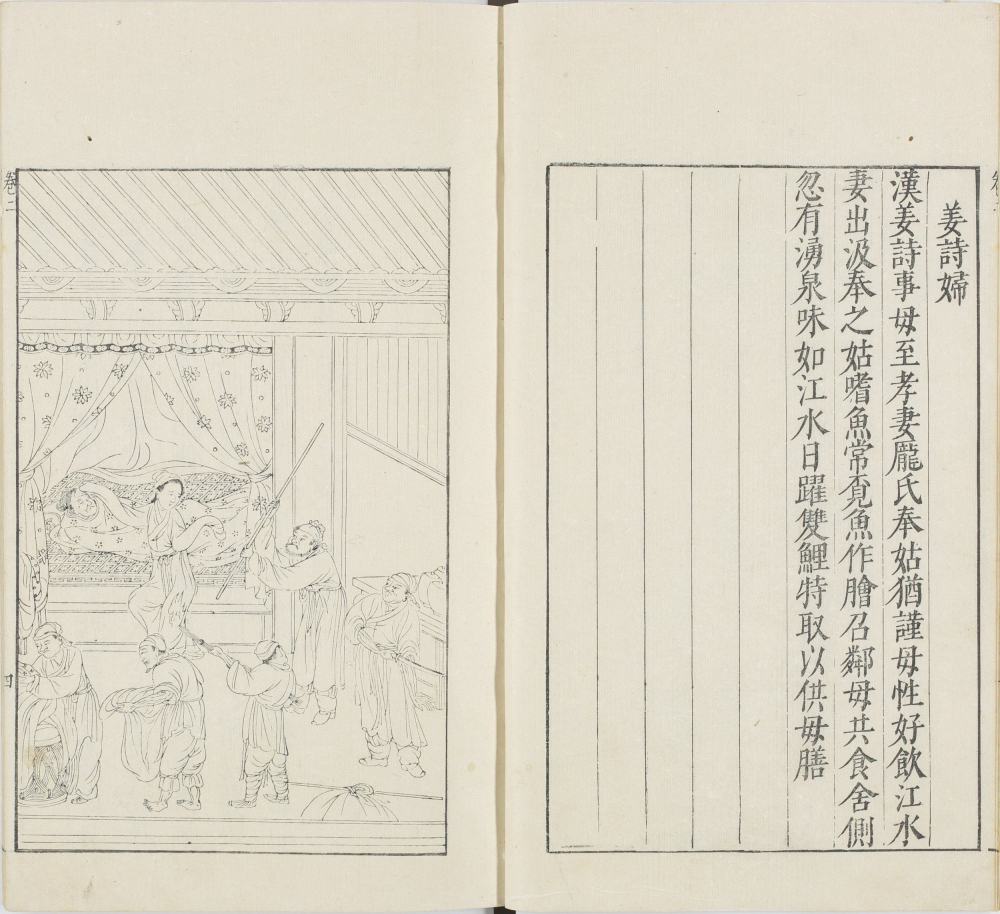 姜詩婦
漢姜詩事母至孝妻龎氏奉姑猶謹母性好飲江水
妻出汲奉之姑嗜魚常覔魚作膾召鄰母共食舍側
忽有湧泉味如江水日躍雙鯉特取以供母膳
卷二
四